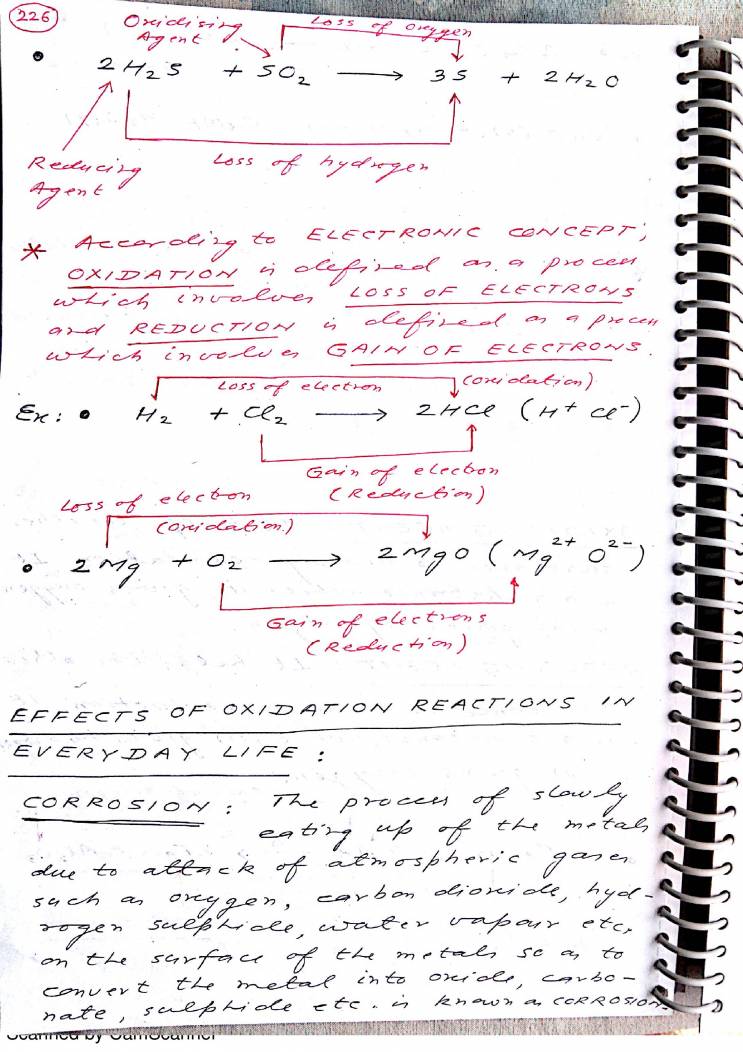 226
Oxidising Loss of oxygen
Agent
• 2H₂S + SO₂ → 3S + 2H₂O
Reducing Loss of hydrogen
Agent
* According to ELECTRONIC CONCEPT,
OXIDATION is defined as a process
which involves LOSS OF ELECTRONS
and REDUCTION is defined as a process
which involves GAIN OF ELECTRONS.
Loss of electron (oxidation)
Ex: • H₂ + Cl₂ → 2HCl (H⁺ Cl⁻)
Gain of electron
(Reduction)
Loss of electron
(oxidation)
• 2Mg + O₂ → 2MgO (Mg²⁺ O²⁻)
Gain of electrons
(Reduction)
EFFECTS OF OXIDATION REACTIONS IN
EVERYDAY LIFE :
CORROSION : The process of slowly
eating up of the metals
due to attack of atmospheric gases
such as oxygen, carbon dioxide, hyd-
rogen sulphide, water vapour etc,
on the surface of the metals so as to
convert the metal into oxide, carbo-
nate, sulphide etc. is known as CORROSION.
Scanned by CamScanner